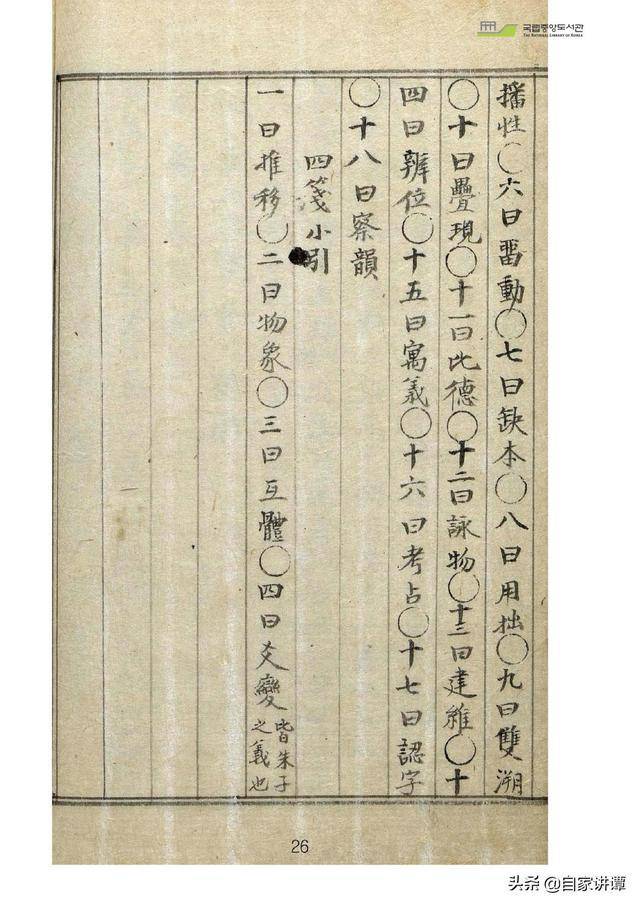 국립중앙도서관
THE NATIONAL LIBRARY OF KOREA
播性〇六曰畱動〇七曰缺本〇八曰用拙〇九曰雙溯
〇十曰疊現〇十一曰比德〇十二曰詠物〇十三曰建維〇十
四曰辨位〇十五曰寓義〇十六曰考占〇十七曰認字
〇十八曰察韻
四箋小引
一曰推移〇二曰物象〇三曰互體〇四曰爻變皆朱子
之義也
26
头条 @自家讲谭